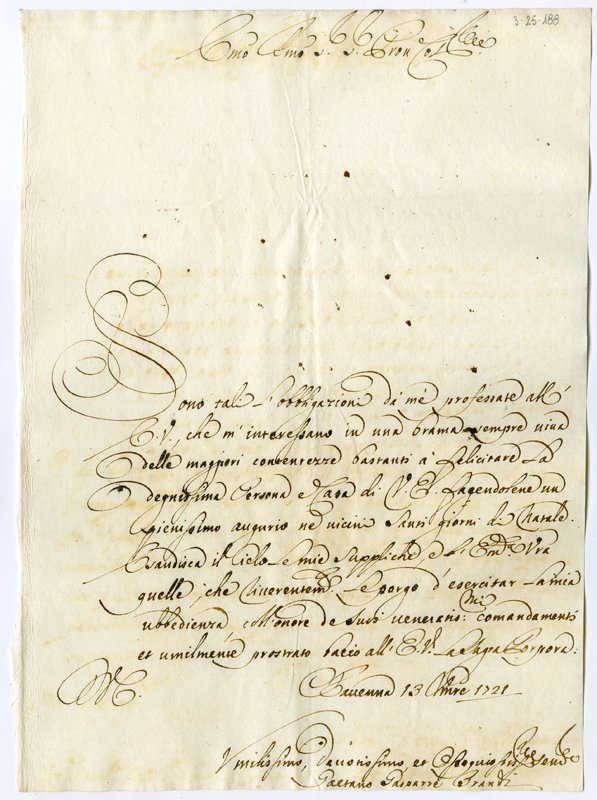 3-25-188
Emo Rmo Sr. Sr. Pron Col.
Sono tali l'obbligazioni da mè professate all'
E.V., che m'interessano in una brama sempre viua
delle maggiori contentezze bastanti à felicitare la
degnissima Persona, e Casa di V. E. facendolene un
pienissimo augurio ne vicini Santi giorni di Natale.
Esaudisca il Cielo le mie Suppliche, e l' Em.a Vra
quelle, che riuerentem.te le porgo d'esercitar la mia
ubbedienza coll'onore de suoi veneratis:mi comandamenti
et umilmente prostrato bacio all' E.V. la Sagra Porpora:
Rauenna 13 Xmbre 1721
Vmilissimo, Diuotissimo, et Ossequiosissimo Seru.e
Gaetano Gasparre Brandi